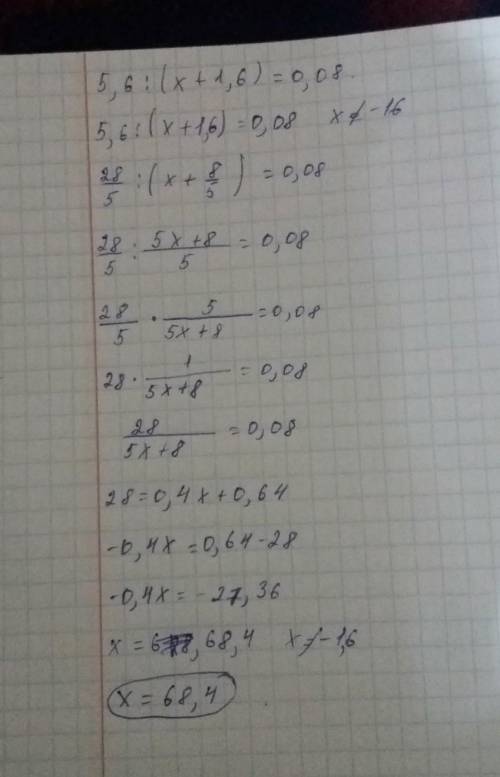 5,6:(x+1,6)=0,08.
5,6:(x+1,6)=0,08 x≠-16
28/5:(x+8/5)=0,08
28/5:(5x+8)/5=0,08
28/5·5/(5x+8)=0,08
28·1/(5x+8)=0,08
28/(5x+8)=0,08
28=0,4x+0,64
-0,4x=0,64-28
-0,4x=-27,36
x=68,4 x≠-1,6
x=68,4